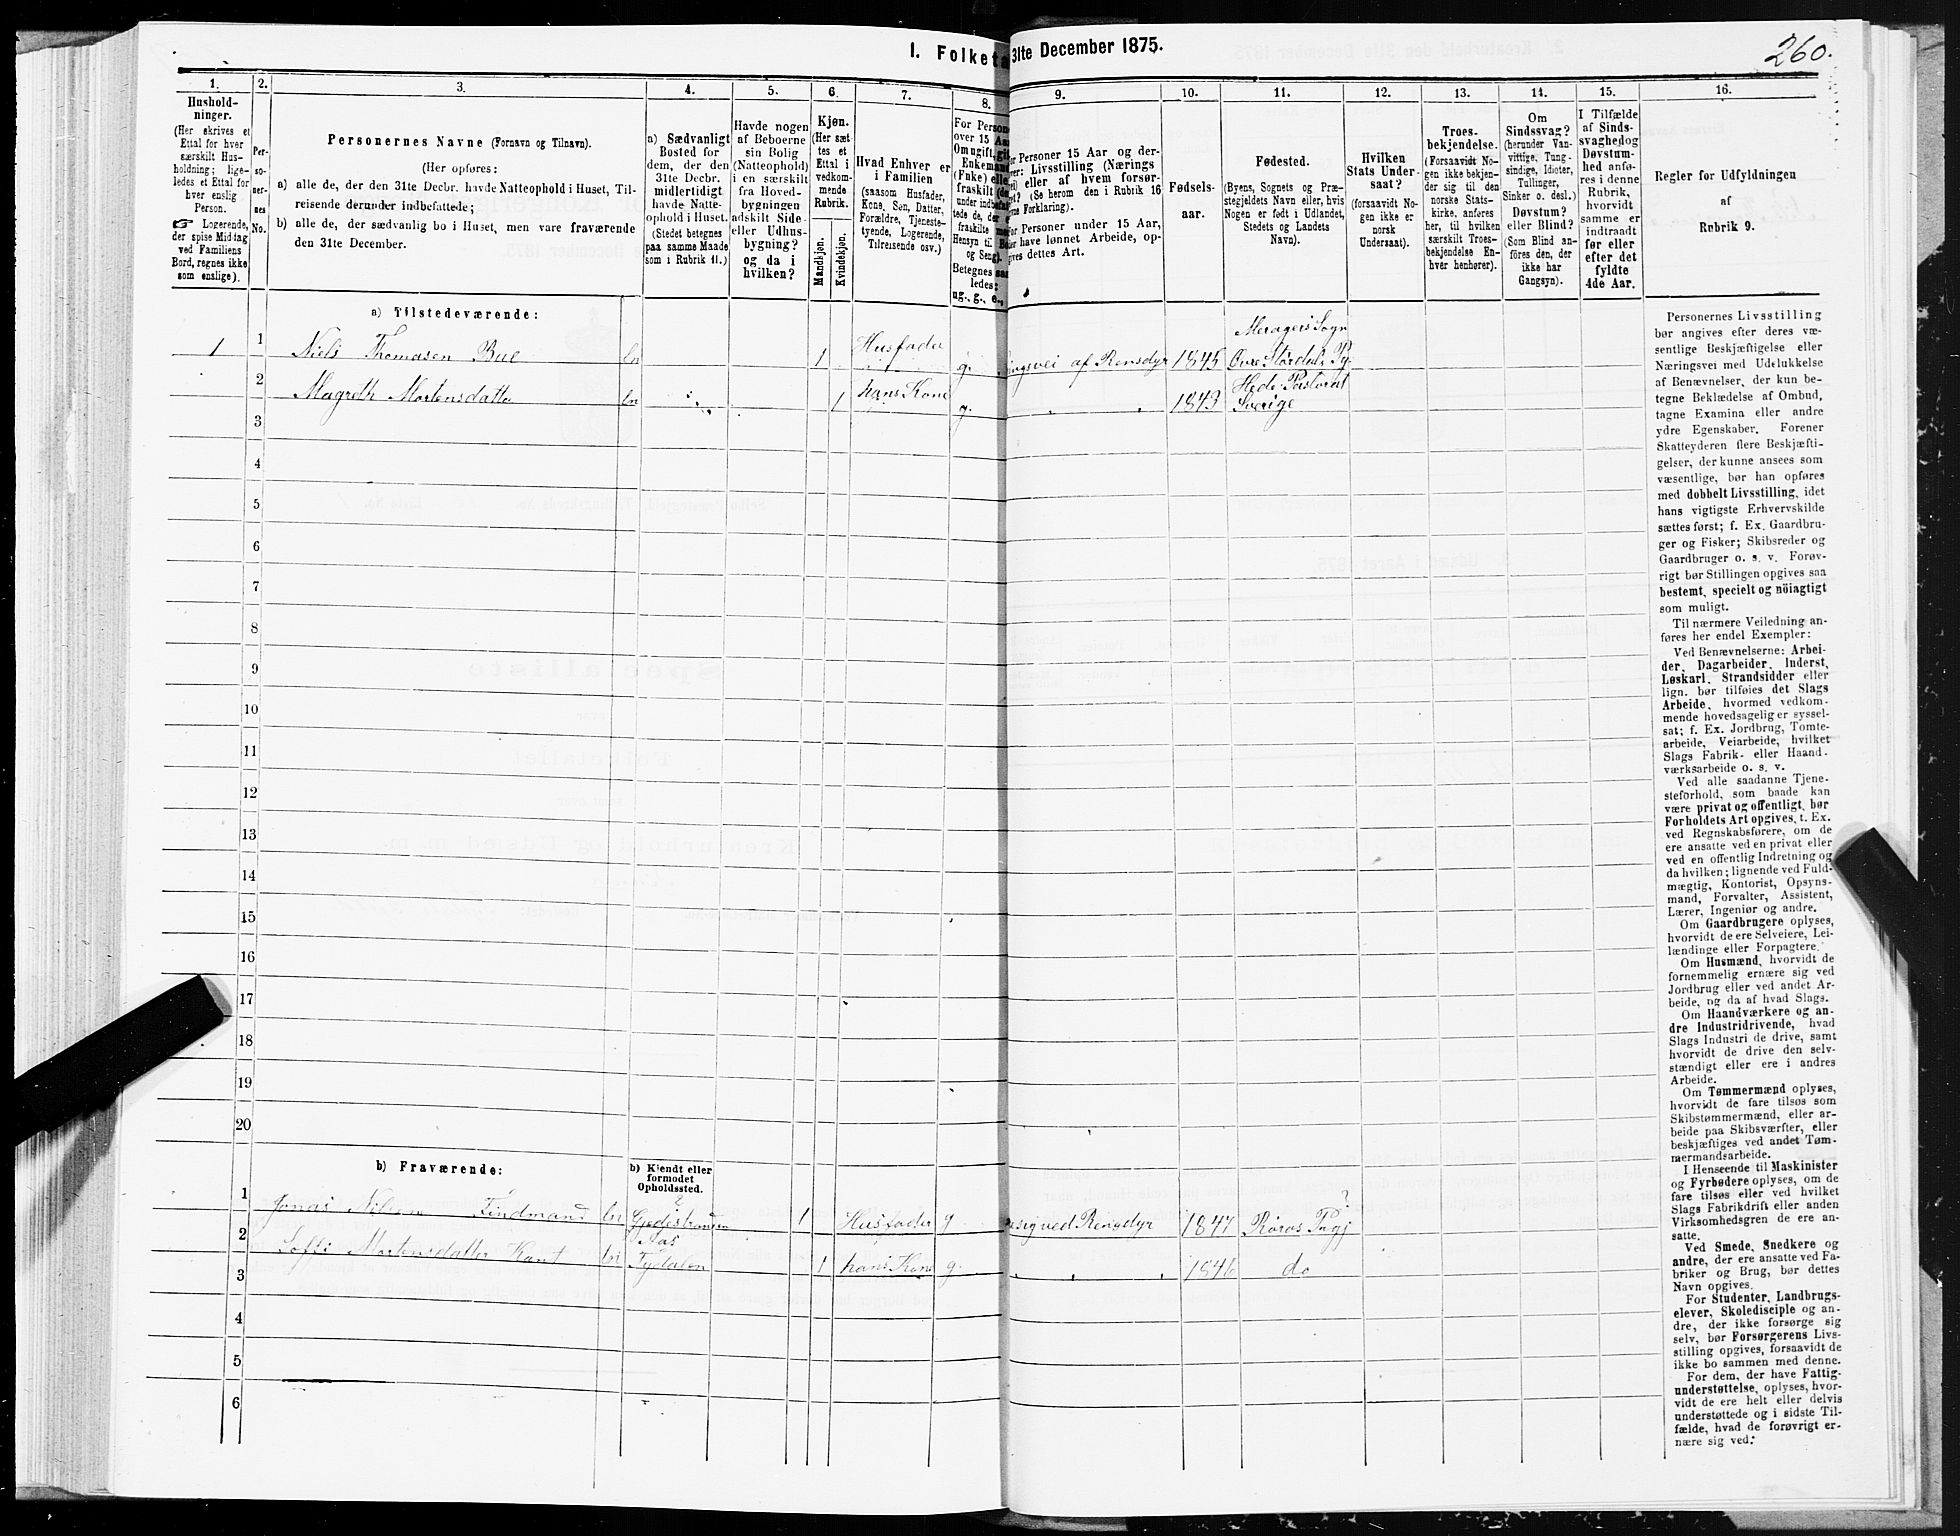 I. Folketa 31te December 1875.
260.
1.
2.
3.
4.
5.
6.
7.
8.
9.
10.
11.
12.
13.
14.
15.
16.
Hushold-
ninger.
(Her skrives et
Ettal for hver
særskilt Hus-
holdning; lige-
ledes et Ettal for
hver enslig
Person.
☞ Logerende,
der spise Middag
ved Familiens
Bord, regnes ikke
som enslige).
Per-
so-
ner-
nes
No.
Personernes Navne (Fornavn og Tilnavn).
(Her opføres:
a) alle de, der den 31te Decbr. havde Natteophold i Huset, Til-
reisende derunder indbefattede;
b) alle de, der sædvanlig bo i Huset, men vare fraværende
den 31te December.
a) Sædvanligt
Bosted for
dem, der den
31te Decbr.
midlertidigt
havde Natte-
ophold i Huset.
(Stedet betegnes
paa samme Maade
som i Rubrik 11.)
Havde nogen
af Beboerne
sin Bolig
(Natteophold)
i en særskilt
fra Hoved-
bygningen
adskilt Side-
eller Udhus-
bygning?
og da i
hvilken?
Kjøn.
(Her sæt-
tes et
Ettal i
vedkom-
mende
Rubrik.
Mandkjøn.
Kvindekjøn.
Hvad Enhver er
i Familien
(saasom Husfader,
Kone, Søn, Datter,
Forældre, Tjeneste-
tyende, Logerende,
Tilreisende osv.)
For Persone
over 15 Aar
Om ugift, gif
Enkemand
(Enke) elle
fraskilt (de
under indbefat
tede de, der e
fraskilte me
Hensyn til Bo
og Seng).
Betegnes saa
ledes:
ug., g., e.,
or Personer 15 Aar og der-
ver: Livsstilling (Nærings
vei) eller af hvem forsør-
ret? (Se herom den i Rubrik 16
vne Forklaring).
or Personer under 15 Aar,
er have lønnet Arbeide, op-
gives dettes Art.
Fødsels-
aar.
Fødested.
(Byens, Sognets og Præ-
stegjeldets Navn eller, hvis
Nogen er født i Udlandet,
Stedets og Landets
Navn).
Hvilken
Stats Under-
saat?
(forsaavidt No-
gen ikke er
norsk
Undersaat).
Troes-
bekjendelse.
(Forsaavidt No-
gen ikke bekjen-
der sig til den
norske Stats-
kirke, anføres
her, til hvilken
særskilt Troes-
bekjendelse En-
hver henhører).
Om
Sindssvag?
(herunder Van-
vittige, Tung-
sindige, Idioter,
Tullinger,
Sinker o. desl.)
Døvstum?
eller Blind?
(Som Blind an-
føres den, der
ikke har
Gangsyn).
I Tilfælde
af Sinds-
svaghed og
Døvstum-
hed anfø-
res i denne
Rubrik,
hvorvidt
samme er
indtraadt
før eller
efter det
fyldte
4de Aar.
Regler for Udfyldningen
af
Rubrik 9.
a) Tilstedeværende:
1 1 Niels Thomasen Bul ln 1 Husfader g. ingsvei af Rensdyr 1845 Meragers Sogn
Øvre Stördal. Pg.
2 Magreth Mortensdatter ln 1 hans Kone g. " " 1843 Hede Pastorat
Sverige
3
4
5
6
7
8
9
10
11
12
13
14
15
16
17
18
19
20
b) Fraværende:
b) Kjendt eller
formodet
Opholdssted.
1 Jonas Nilsen Findmand ln 1 Husfader g ved Rensdyr 1847 Röros Prgj ?
2 Soffi Mortensdatter Kant ln Tydalen 1 hans Kone g. " " 1846 do
3
4
5
6
Personernes Livsstilling
bør angives efter deres væ-
sentlige Beskjæftigelse eller
Næringsvei med Udelukkelse
af Benævnelser, der kun be-
tegne Beklædelse af Ombud,
tagne Examina eller andre
ydre Egenskaber. Forener
Skatteyderen flere Beskjæfti-
gelser, der kunne ansees som
væsentlige, bør han opføres
med dobbelt Livsstilling, idet
hans vigtigste Erhvervskilde
sættes først; f. Ex. Gaardbru-
ger og Fisker; Skibsreder og
Gaardbruger o. s. v. Forøv-
rigt bør Stillingen opgives saa
bestemt, specielt og nöiagtigt
som muligt.
Til nærmere Veiledning an-
føres her endel Exempler:
Ved Benævnelserne: Arbei-
der, Dagarbeider, Inderst,
Løskarl, Strandsidder eller
lign. bør tilføies det Slags
Arbeide, hvormed vedkom-
mende hovedsagelig er syssel-
sat; f. Ex. Jordbrug, Tomte-
arbeide, Veiarbeide, hvilket
Slags Fabrik- eller Haand-
værksarbeide o. s. v.
Ved alle saadanne Tjene-
steforhold, som baade kan
være privat og offentligt, bør
Forholdets Art opgives, t. Ex.
ved Regnskabsførere, om de
ere ansatte ved en privat eller
ved en offentlig Indretning og
da hvilken; lignende ved Fuld-
mægtig, Kontorist, Opsyns-
mand, Forvalter, Assistent,
Lærer, Ingeniør og andre.
Om Gaardbrugere oplyses,
hvorvidt de ere Selveiere, Lei-
lændinge eller Forpagtere.
Om Husmænd, hvorvidt de
fornemmelig ernære sig ved
Jordbrug eller ved andet Ar-
beide, og da af hvad Slags.
Om Haandværkere og an-
dre Industridrivende, hvad
Slags Industri de drive, samt
hvorvidt de drive den selv-
stændigt eller ere i andres
Arbeide.
Om Tømmermænd oplyses,
hvorvidt de fare tilsøs som
Skibstømmermænd, eller ar-
beide paa Skibsværfter, eller
beskjæftiges ved andet Tøm-
mermandsarbeide.
I Henseende til Maskinister
og Fyrbødere oplyses, om de
fare tilsøs eller ved hvilket
Slags Fabrikdrift eller anden
Virksomhedsgren de ere an-
satte.
Ved Smede, Snedkere og
andre, der ere ansatte ved Fa-
briker og Brug, bør dettes
Navn opgives.
For Studenter, Landbrugs-
elever, Skoledisciple og an-
dre, der ikke forsørge sig
selv, bør Forsørgerens Livs-
stilling opgives, forsaavidt de
ikke bo sammen med denne.
For dem, der have Fattig-
understøttelse, oplyses, hvor-
vidt de ere helt eller delvis
understøttede og i sidste Til-
fælde, hvad de forøvrigt er-
nære sig ved.